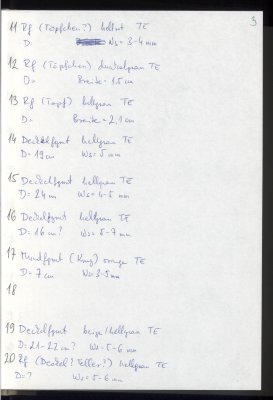 3
11 Rf (Töpfchen?) hellrot TE
D: Ws = 3-4 mm
12 Rf (Töpfchen) dunkelgrau TE
D= Breite = 1.5 cm
13 Rf (Topf) hellgrau TE
D= Breite = 2,1 cm
14 Deckelfgmt hellgrau TE
D = 19 cm Ws = 5 mm
15 Deckelfgmt hellgrau TE
D = 24 cm Ws = 4-5 mm
16 Deckelfgmt hellgrau TE
D = 16 cm? Ws = 5-7 mm
17 Mundfgmt (Krug) orange TE
D = 7 cm Ws = 3-5 mm
18
19 Deckelfgmt beige/hellgrau TE
D = 21-22 cm? Ws = 5-6 mm
20 Rf (Deckel? Teller?) hellgrau TE
D = ? Ws = 5-6 mm